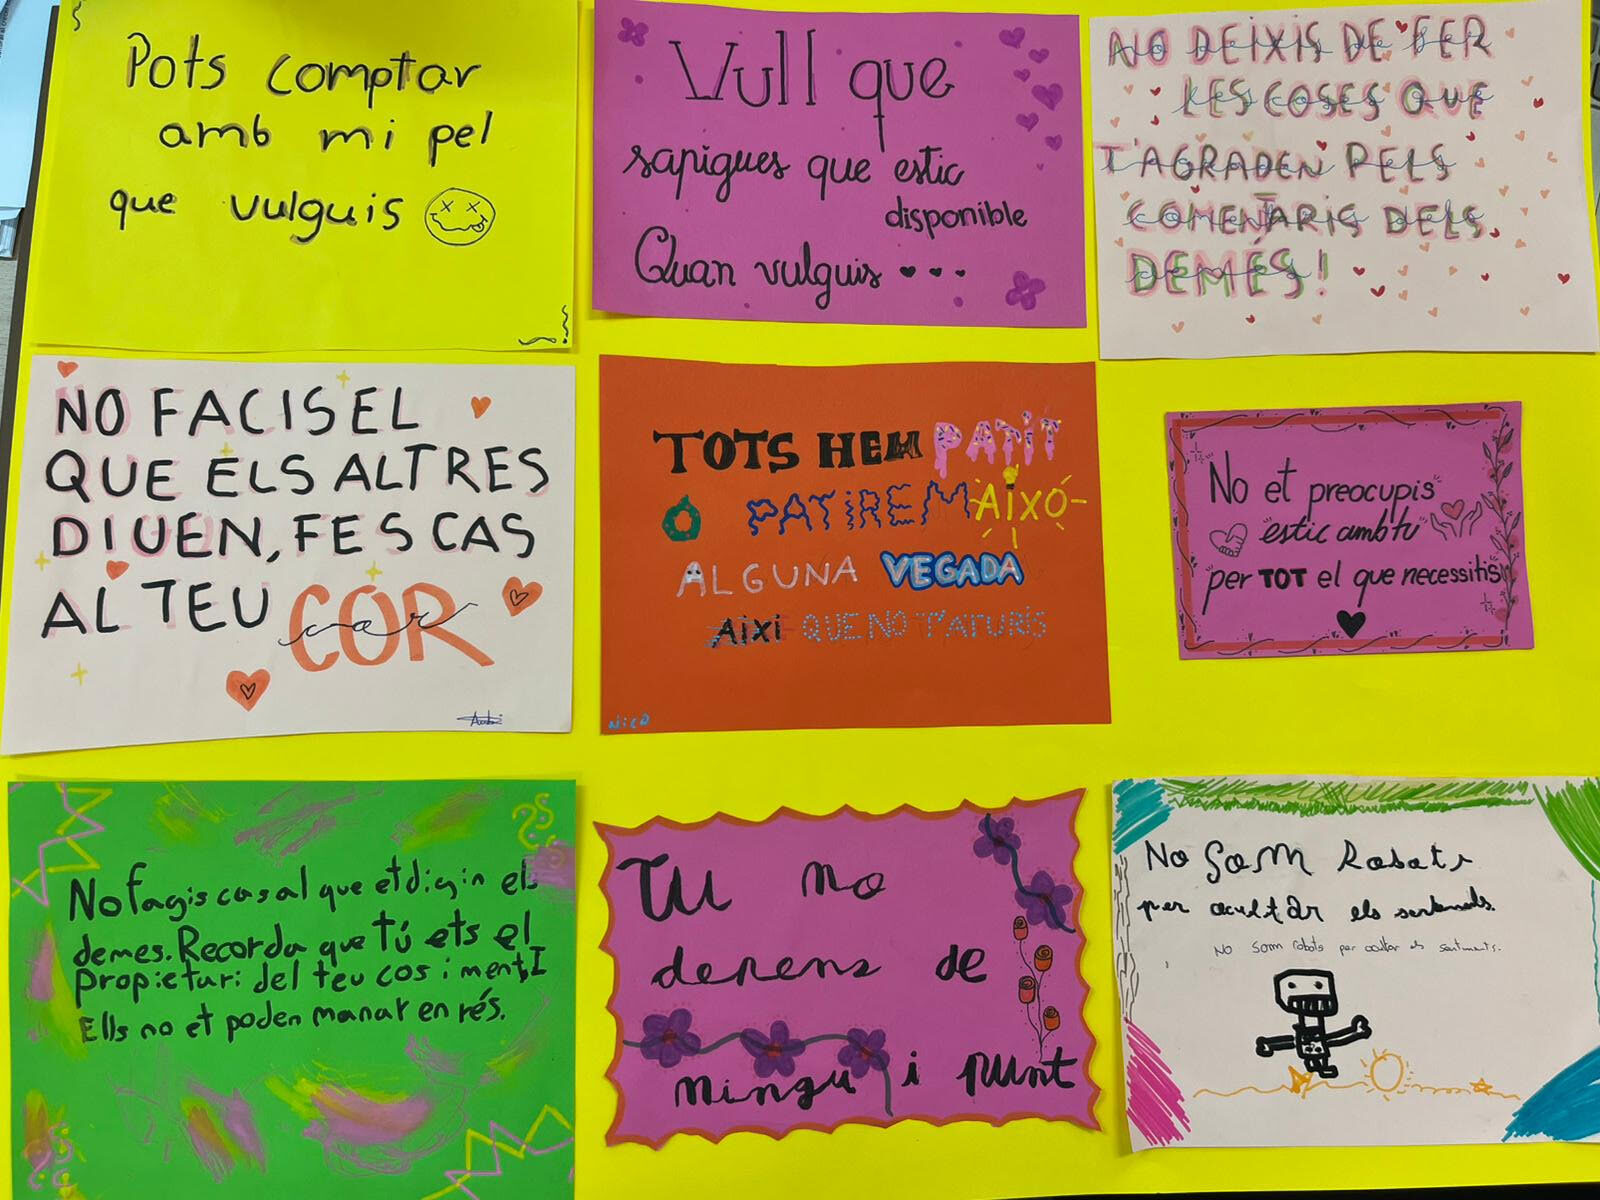 Pots comptar
amb mi pel
que vulguis
Vull que
sapigues que estic
disponible
Quan vulguis
NO DEIXIS DE FER
LES COSES QUE
T'AGRADEN PELS
COMENTARIS DELS
DEMÉS!
NO FACIS EL
QUE ELS ALTRES
DIUEN, FES CAS
AL TEU COR
cor
TOTS HEM PATIT
O PATIREM AIXÒ
ALGUNA VEGADA
AIXI QUE NO T'ATURIS
NICO
No et preocupis
estic amb tu
per TOT el que necessitis
No fagis cas al que et digin els
demes. Recorda que tú ets el
propietari del teu cos i ment, I
Ells no et poden manar en rés.
Tu no
depens de
ningu i punt
No Som Robots
per ocultar els sentiments.
NO Som robots per ocultar els sentiments.